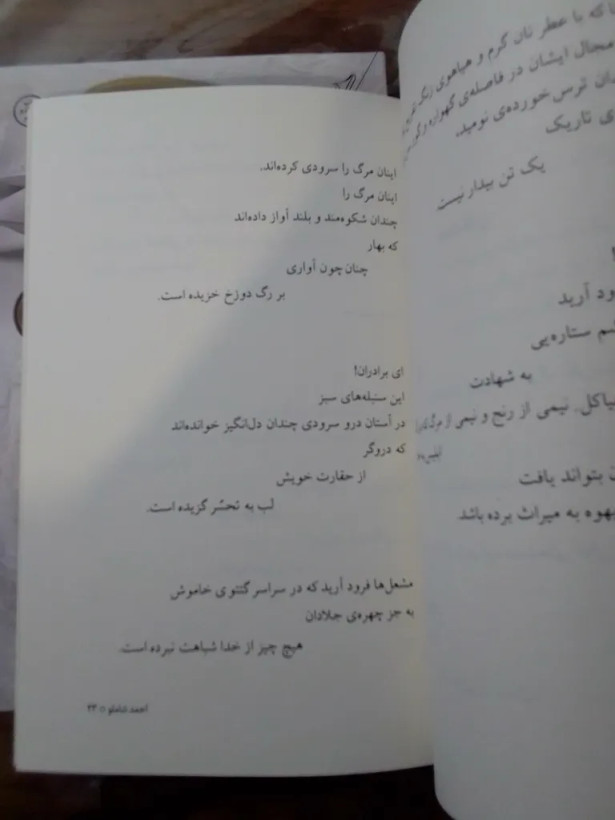 ا که با عطر نان گرم و هیاهوی زنگ
مجال ایشان در فاصله‌ی گهواره و گور
ان ترس خورده‌ی نومید.
ی تاریک
یک تن بیدار نیست
ود آرید
م ستاره‌یی
به شهادت
یاکل. نیمی از رنج و نیمی از مرگ
ن بتواند یافت
بهوه به میراث برده باشد
اینان مرگ را سرودی کرده‌اند.
اینان مرگ را
چندان شکوه‌مند و بلند آواز داده‌اند
که بهار
چنان‌چون آواری
بر رگ دوزخ خزیده است.
ای برادران!
این سنبله‌های سبز
در آستان درو سرودی چندان دل‌انگیز خوانده‌اند
که دروگر
از حقارت خویش
لب به تحسّر گزیده است.
مشعل‌ها فرود آرید که در سراسر گتتوی خاموش
به جز چهره‌ی جلادان
هیچ چیز از خدا شباهت نبرده است.
احمد شاملو ○ ۲۳